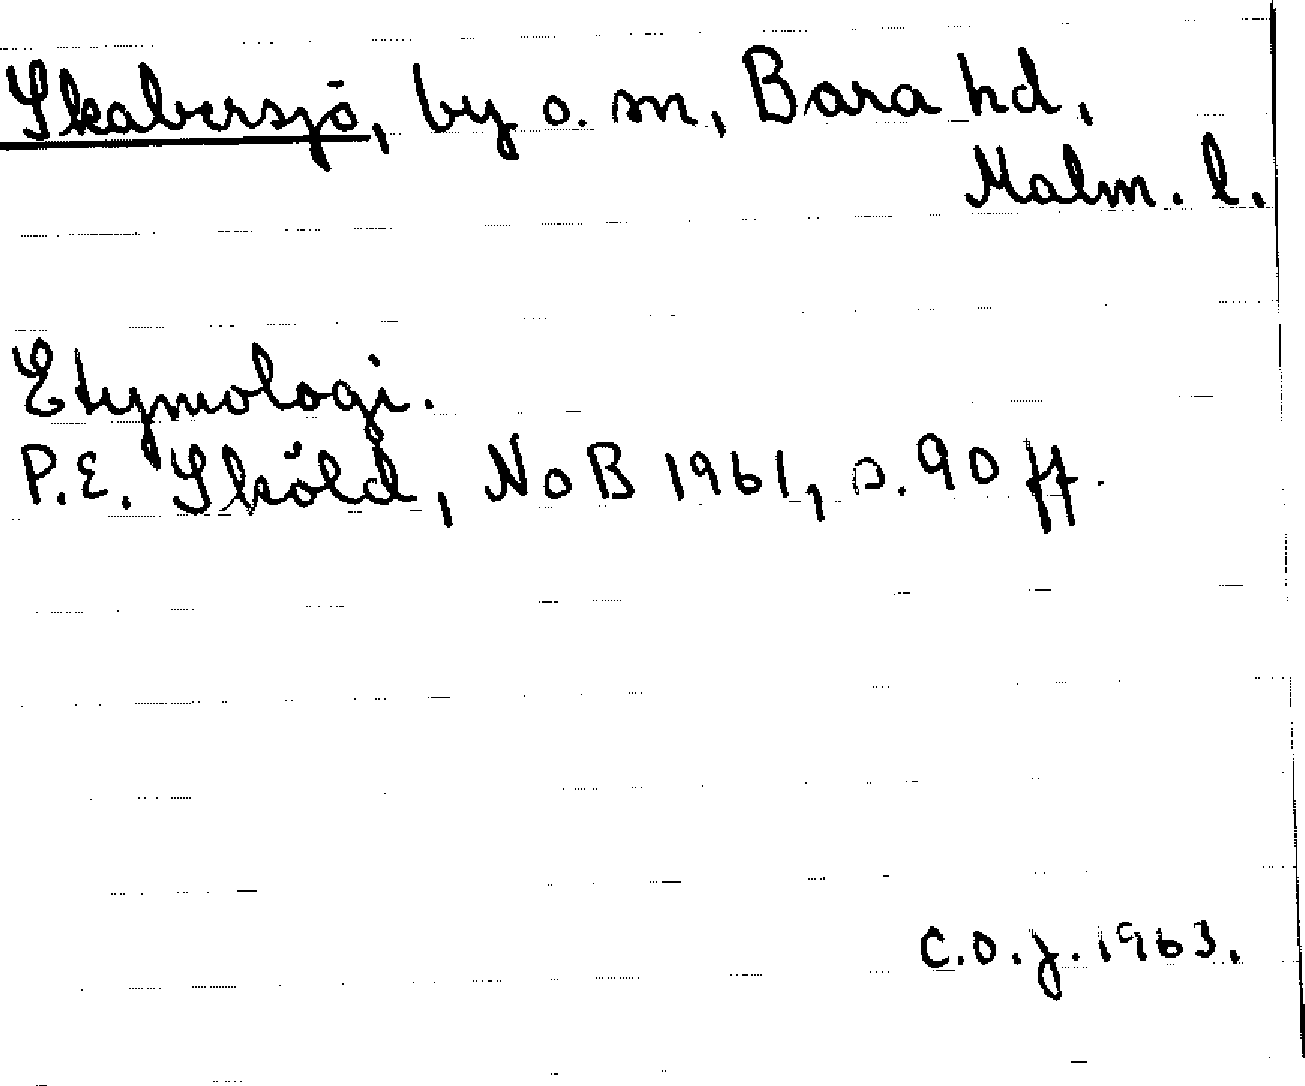 Skabersjö, by o. sn, Bara hd,
Malm. l.
Etymologi.
P.E. Sköld, NoB 1961, s. 90 ff.
C.O.J. 1963.